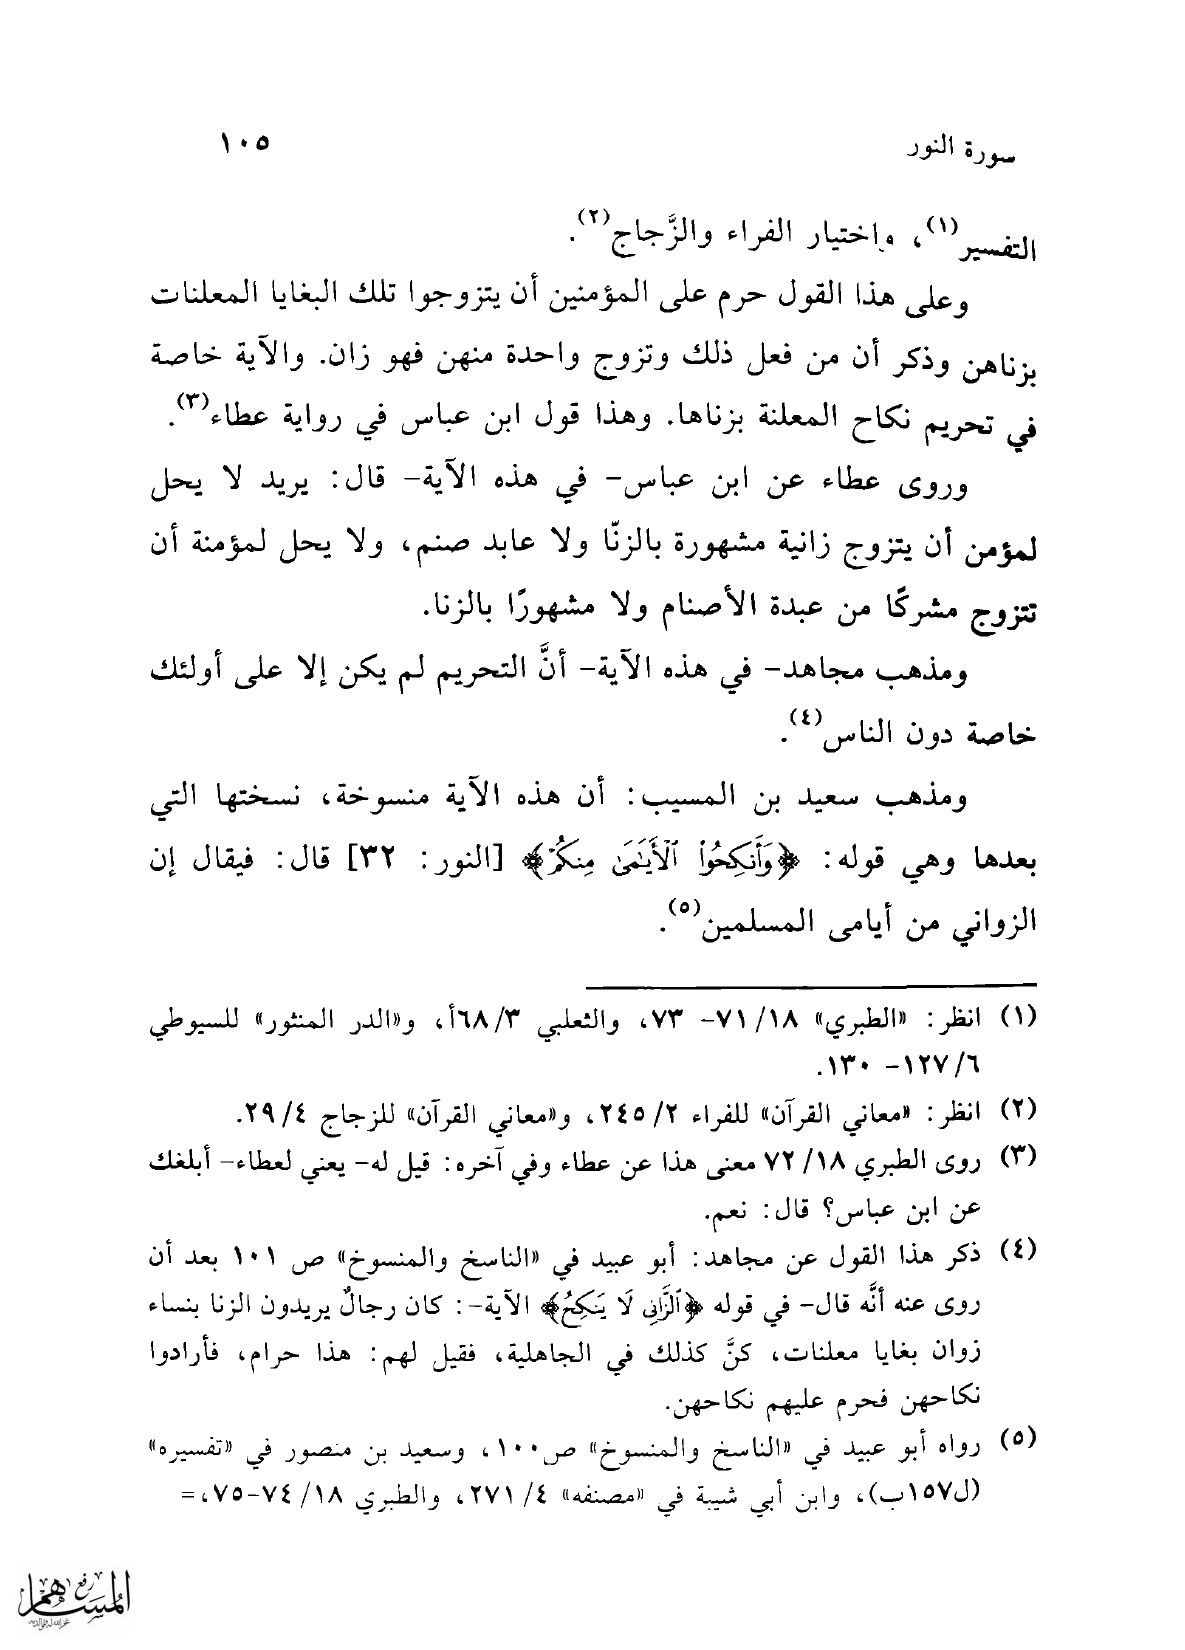 سورة النور
١٠٥
التفسير(١)، واختيار الفراء والزَّجاج(٢).
وعلى هذا القول حرم على المؤمنين أن يتزوجوا تلك البغايا المعلنات
بزناهن وذكر أن من فعل ذلك وتزوج واحدة منهن فهو زان. والآية خاصة
في تحريم نكاح المعلنة بزناها. وهذا قول ابن عباس في رواية عطاء(٣).
وروى عطاء عن ابن عباس- في هذه الآية- قال: يريد لا يحل
لمؤمن أن يتزوج زانية مشهورة بالزنّا ولا عابد صنم، ولا يحل لمؤمنة أن
تتزوج مشركًا من عبدة الأصنام ولا مشهورًا بالزنا.
ومذهب مجاهد- في هذه الآية- أنَّ التحريم لم يكن إلا على أولئك
خاصة دون الناس(٤).
ومذهب سعيد بن المسيب: أن هذه الآية منسوخة، نسختها التي
بعدها وهي قوله: ﴿وَأَنكِحُوا۟ ٱلْأَيَـٰمَىٰ مِنكُمْ﴾ [النور: ٣٢] قال: فيقال إن
الزواني من أيامى المسلمين(٥).
(١) انظر: «الطبري» ١٨/ ٧١- ٧٣، والثعلبي ٣/ ٦٨أ، و«الدر المنثور» للسيوطي
٦/ ١٢٧- ١٣٠.
(٢) انظر: «معاني القرآن» للفراء ٢/ ٢٤٥، و«معاني القرآن» للزجاج ٤/ ٢٩.
(٣) روى الطبري ١٨/ ٧٢ معنى هذا عن عطاء وفي آخره: قيل له- يعني لعطاء- أبلغك
عن ابن عباس؟ قال: نعم.
(٤) ذكر هذا القول عن مجاهد: أبو عبيد في «الناسخ والمنسوخ» ص ١٠١ بعد أن
روى عنه أنَّه قال- في قوله ﴿ٱلزَّانِى لَا يَنكِحُ﴾ الآية-: كان رجالٌ يريدون الزنا بنساء
زوان بغايا معلنات، كنَّ كذلك في الجاهلية، فقيل لهم: هذا حرام، فأرادوا
نكاحهن فحرم عليهم نكاحهن.
(٥) رواه أبو عبيد في «الناسخ والمنسوخ» ص١٠٠، وسعيد بن منصور في «تفسيره»
(ل١٥٧ب)، وابن أبي شيبة في «مصنفه» ٤/ ٢٧١، والطبري ١٨/ ٧٤-٧٥،=